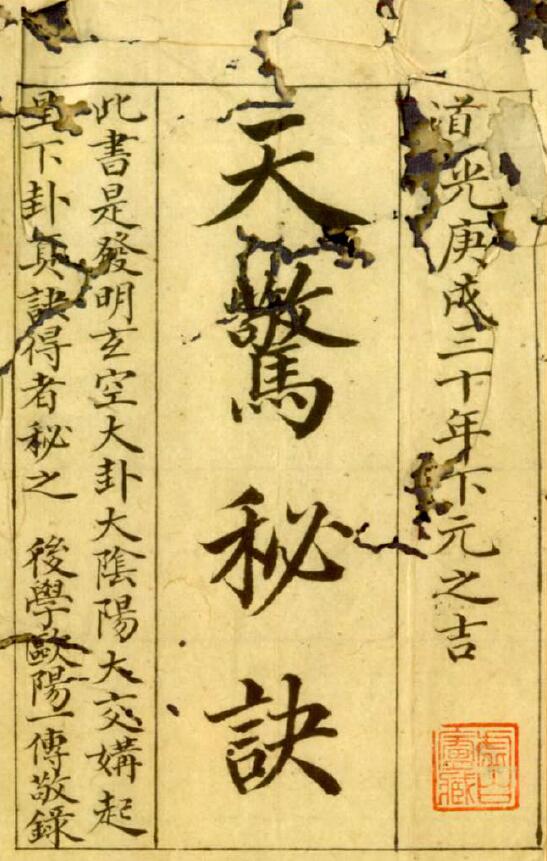 道光庚戌三十年下元之吉
天驚秘訣
此書是發明玄空大卦大陰陽大交媾起
星下卦真訣得者秘之 後學歐陽一傳敬錄
虛白廬藏